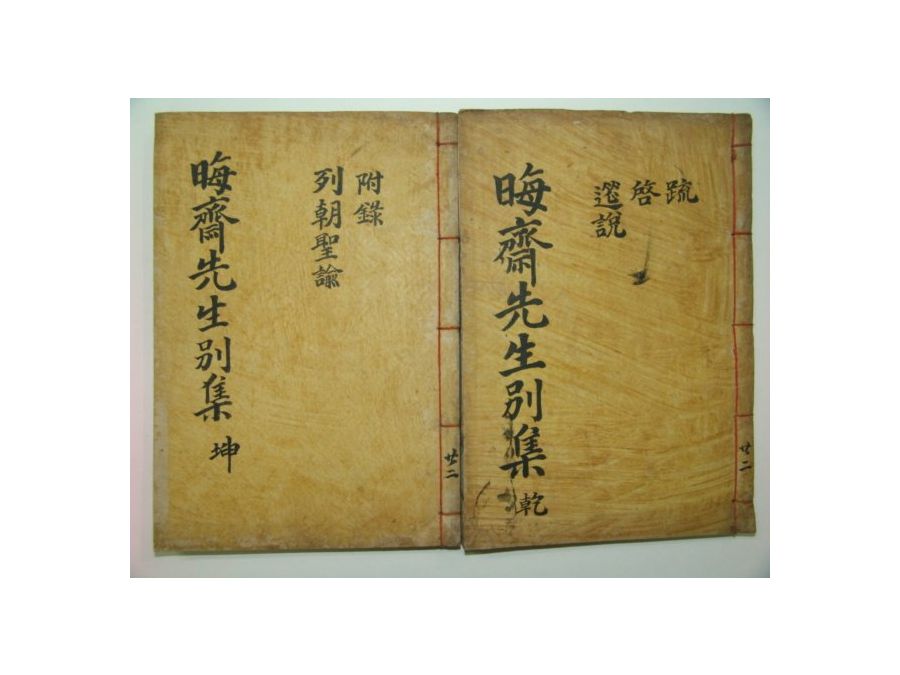 疏
啓
遝說
晦齋先生別集 乾
共二
附錄
列朝聖諭
晦齋先生別集 坤
共二